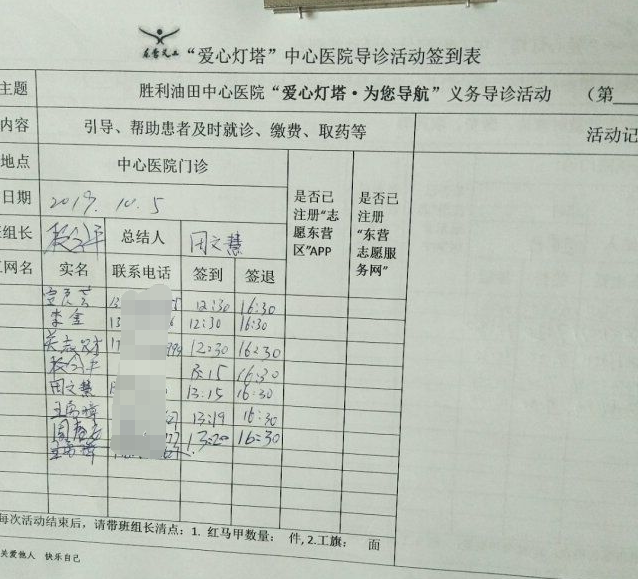 东营义工 “爱心灯塔”中心医院导诊活动签到表
主题 胜利油田中心医院“爱心灯塔·为您导航”义务导诊活动 （第
内容 引导、帮助患者及时就诊、缴费、取药等 活动记
地点 中心医院门诊
是否已注册“志愿东营区”APP
是否已注册“东营志愿服务网”
日期 2019.10.5
组长 总结人 田文慧
网名 实名 联系电话 签到 签退
12:30 16:30
李金 13 12:30 16:30
12:30 16:30
13:15 16:30
田文慧 13:15 16:30
13:19 16:30
13:20 16:30
每次活动结束后，请带班组长清点：1. 红马甲数量： 件, 2.工旗： 面
关爱他人 快乐自己